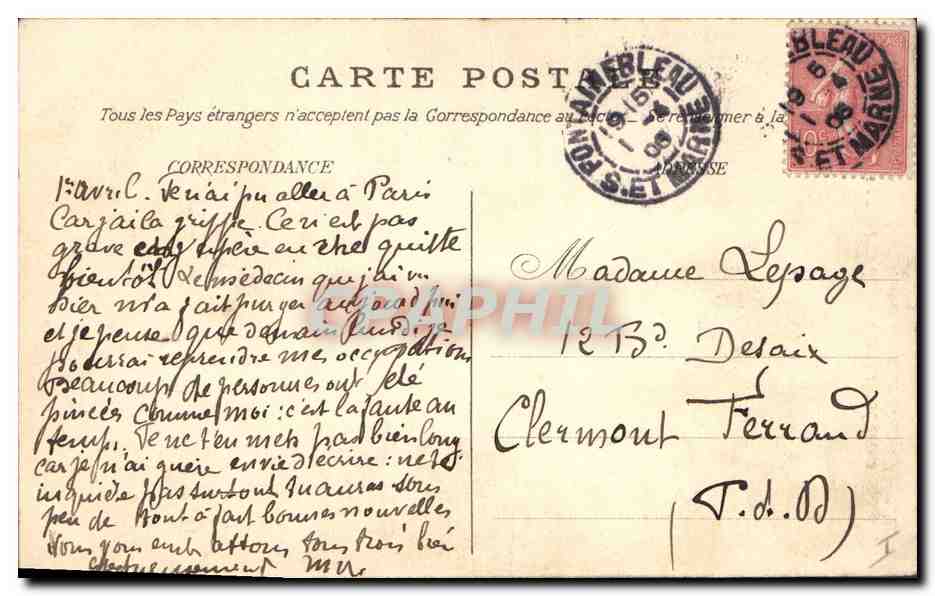 CARTE POSTALE
Tous les Pays étrangers n'acceptent pas la Correspondance au Recto. Se renseigner à la
CORRESPONDANCE
1er avril. Je n'ai pu aller à Paris
Car j'ai la grippe. Ceci est pas
grave espère en être quitte
bientôt Le médecin que j'ai vu
hier m'a fait purger aujourd'hui
et je pense que demain lundi je
pourrai reprendre mes occupations
Beaucoup de personnes ont été
pincées comme moi : c'est la faute au
temps. Je ne t'en mets pas bien long
car je n'ai guère envie d'écrire : ne t'
inquiète pas surtout tu auras sous
peu de tout à fait bonnes nouvelles
Nous vous embrassons tous trois bien
affectueusement
ADRESSE
Madame Lepage
12 Bd. Desaix
Clermont Ferrand
(P.d.D)
FONTAINEBLEAU
S. ET MARNE
19 15
1 4
06
EBLEAU
19 5
1 4
06
S. ET MARNE
10c
I
CPAPHIL